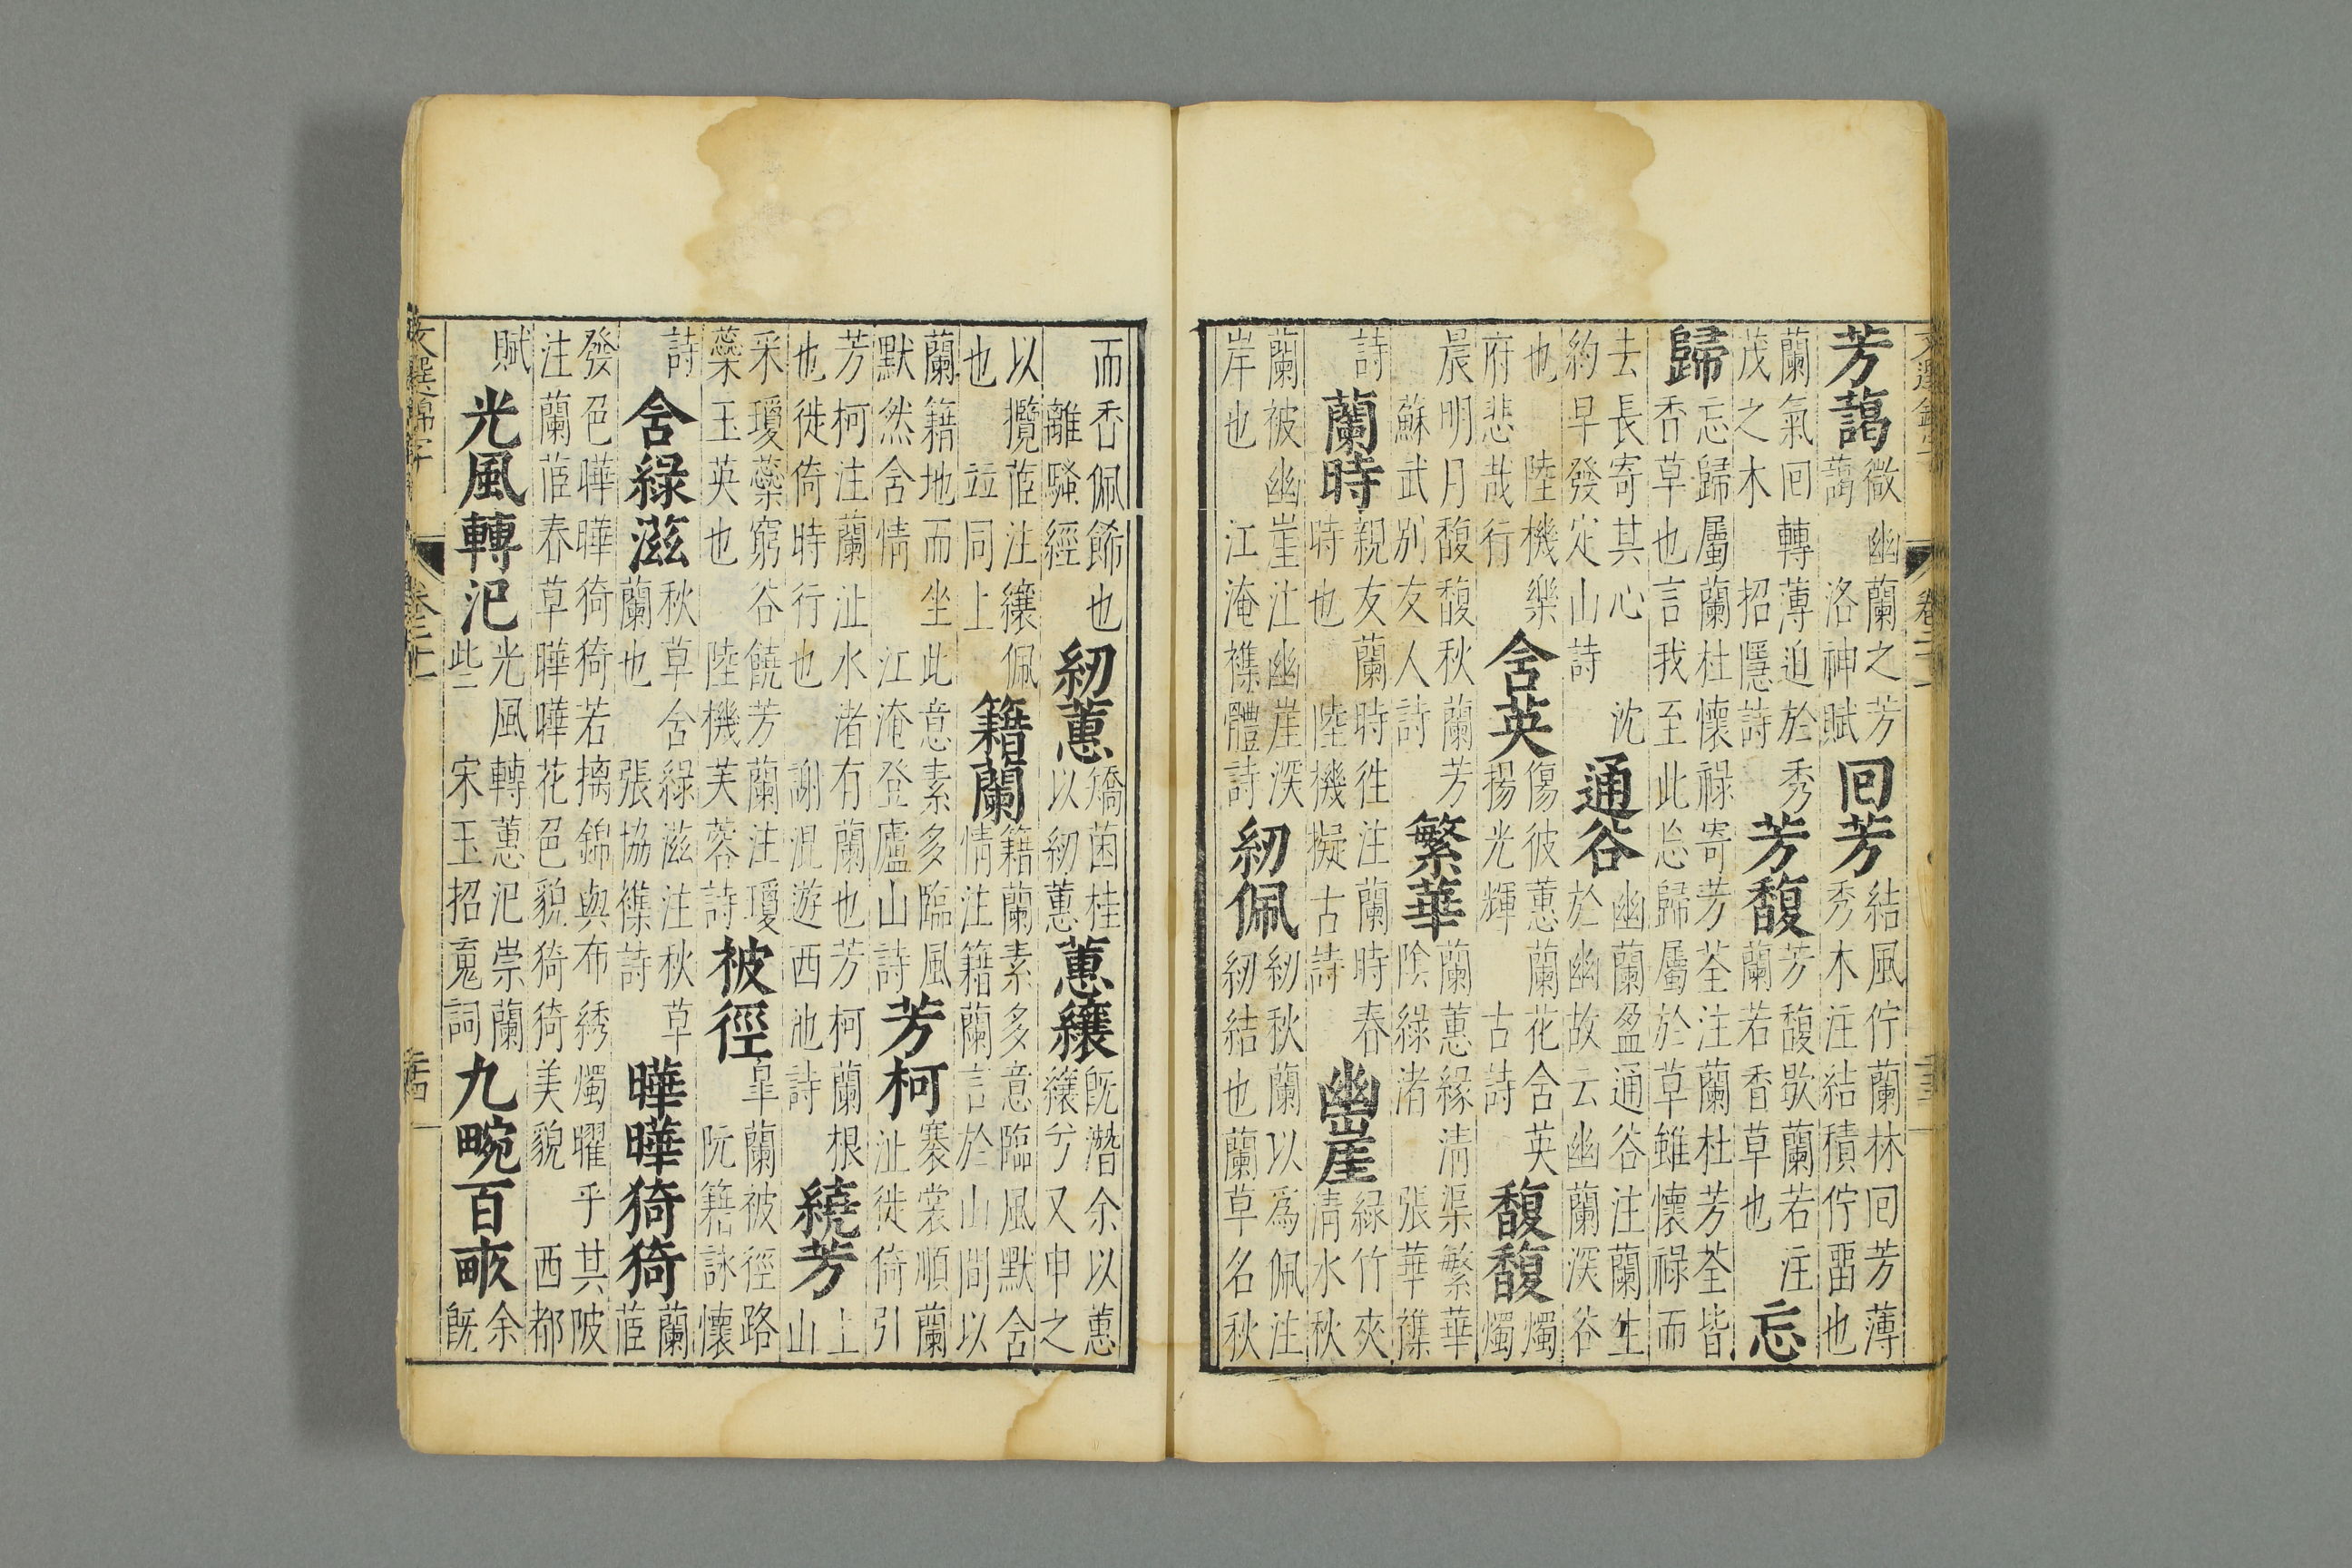 芳藹微幽蘭之芳藹洛神賦回芳結風佇蘭林回芳薄秀木注結積佇畱也
蘭氣回轉薄迫於秀茂之木招隱詩芳馥芳馥歇蘭若注蘭若香草也忘
歸忘歸屬蘭杜懷祿寄芳荃注蘭杜芳荃皆香草也言我至此忘歸屬於草雖懷祿而
去長寄其心沈約早發定山詩通谷幽蘭盈通谷注蘭生於幽故云幽蘭深谷
也陸機樂府悲哉行含英傷彼蕙蘭花含英揚光輝古詩馥馥燭燭
晨明月馥馥秋蘭芳蘇武別友人詩繁華蘭蕙緣清渠繁華陰綠渚張華襍
詩蘭時親友蘭時徃注蘭時春時也陸機擬古詩幽崖綠竹夾清水秋
蘭被幽崖注幽崖深岸也江淹襍體詩紉佩紉秋蘭以爲佩注紉結也蘭草名秋
而香佩餙也離騷經紉蕙矯菌桂以紉蕙蕙纕旣潛余以蕙纕兮又申之
以攬茝注纕佩也竝同上籍蘭籍蘭素多意臨風默含情注籍蘭言於山間以
蘭籍地而坐此意素多臨風默然含情江淹登廬山詩芳柯褰裳順蘭沚徙倚引
芳柯注蘭沚水渚有蘭也芳柯蘭根也徙倚時行也謝混遊西池詩繞芳上山
采瓊蘂窮谷饒芳蘭注瓊蘂玉英也陸機芙蓉詩被徑皐蘭被徑路阮籍詠懷
詩含綠滋秋草含綠滋注秋草蘭也張協襍詩曄曄猗猗蘭茝
發色曄曄猗猗若摛錦與布綉燭曜乎其陂注蘭茝春草曄曄花色貌猗猗美貌西都
賦光風轉汜光風轉蕙汜崇蘭些宋玉招䰟詞九畹百畝余旣